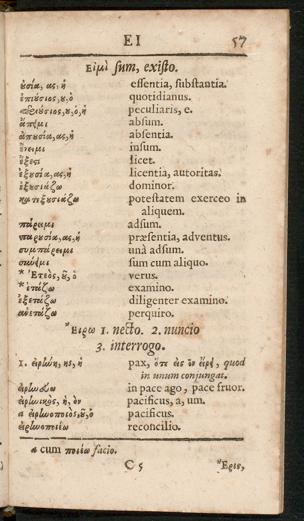 EI 57
Εἰμὶ sum, existo.
ȣ̓σία, ας, ἡ essentia, substantia.
ἐπιȣ́σιος, ȣ, ὁ quotidianus.
περιȣ́σιος, ȣ, ὁ, ἡ peculiaris, e.
ἄπειμι absum.
ἀπȣσία, ας, ἡ absentia.
ἔνειμι insum.
ἔξεςι licet.
ἐξȣσία, ας, ἡ licentia, autoritas.
ἐξȣσιάζω dominor.
κατεξȣσιάζω potestatem exerceo in
aliquem.
πάρειμι adsum.
παρȣσία, ας, ἡ præsentia, adventus.
συμπάρειμι unà adsum.
σύνειμι sum cum aliquo.
* Ἐτεὸς, ȣ͂, ὁ verus.
* ἐτάζω examino.
ἐξετάζω diligenter examino.
ἀνετάζω perquiro.
*Εἴρω 1. necto. 2. nuncio
3. interrogo.
1. εἰρήνη, ης, ἡ pax, ὅτι εἰς ἓν εἴρει, quod
in unum conjungat.
εἰρηνεύω in pace ago, pace fruor.
εἰρηνικὸς, ἡ, ὸν pacificus, a, um.
a εἰρηνοποιὸς, ȣ͂, ὁ pacificus.
εἰρηνοποιέω reconcilio.
a cum ποιέω facio.
C 5 *Ερις,